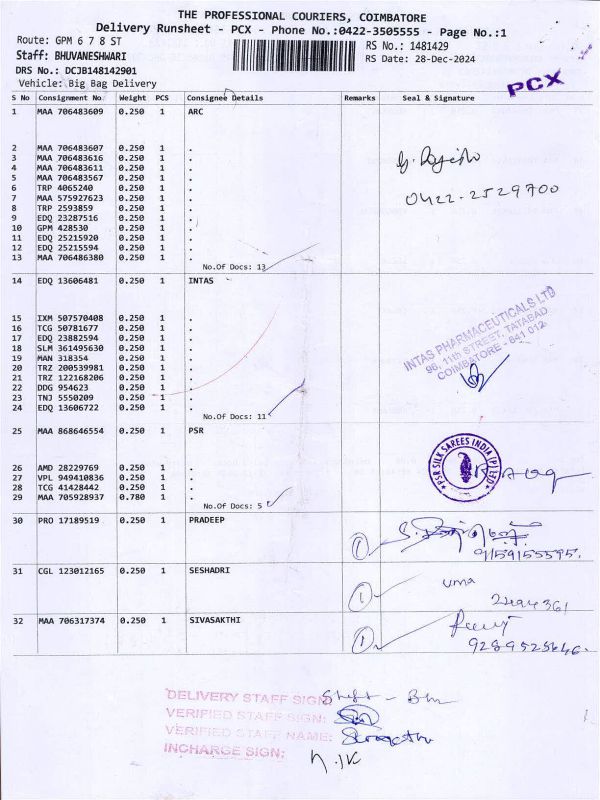 THE PROFESSIONAL COURIERS, COIMBATORE
Delivery Runsheet - PCX - Phone No.:0422-3505555 - Page No.:1
Route: GPM 6 7 8 ST
RS No.: 1481429
Staff: BHUVANESHWARI
RS Date: 28-Dec-2024
DRS No.: DCJB148142901
PCX
Vehicle: Big Bag Delivery
S No Consignment No. Weight PCS Consignee Details Remarks Seal & Signature
1 MAA 706483609 0.250 1 ARC
2 MAA 706483607 0.250 1 .
3 MAA 706483616 0.250 1 .
4 MAA 706483611 0.250 1 .
5 MAA 706483567 0.250 1 .
6 TRP 4065240 0.250 1 .
7 MAA 575927623 0.250 1 .
0422-2529700
8 TRP 2593859 0.250 1 .
9 EDQ 23287516 0.250 1 .
10 GPM 428530 0.250 1 .
11 EDQ 25215920 0.250 1 .
12 EDQ 25215594 0.250 1 .
13 MAA 706486380 0.250 1 .
No.Of Docs: 13
14 EDQ 13606481 0.250 1 INTAS
15 IXM 507570408 0.250 1 .
16 TCG 50781677 0.250 1 .
17 EDQ 23882594 0.250 1 .
18 SLM 361495630 0.250 1 .
19 MAN 318354 0.250 1 .
20 TRZ 200539981 0.250 1 .
21 TRZ 122168206 0.250 1 .
22 DDG 954623 0.250 1 .
23 TNJ 5550209 0.250 1 .
24 EDQ 13606722 0.250 1 .
No.Of Docs: 11
INTAS PHARMACEUTICALS LTD
96, 11th STREET, TATABAD
COIMBATORE - 641 012
25 MAA 868646554 0.250 1 PSR
26 AMD 28229769 0.250 1 .
27 VPL 949410836 0.250 1 .
28 TCG 41428442 0.250 1 .
29 MAA 705928937 0.780 1 .
No.Of Docs: 5
PSR SILK SAREES INDIA (P) LTD
30 PRO 17189519 0.250 1 PRADEEP
1
9159155595.
31 CGL 123012165 0.250 1 SESHADRI
1 uma
2494361
32 MAA 706317374 0.250 1 SIVASAKTHI
1
9289525646.
DELIVERY STAFF SIGN:
VERIFIED STAFF SIGN:
VERIFIED STAFF NAME:
INCHARGE SIGN: